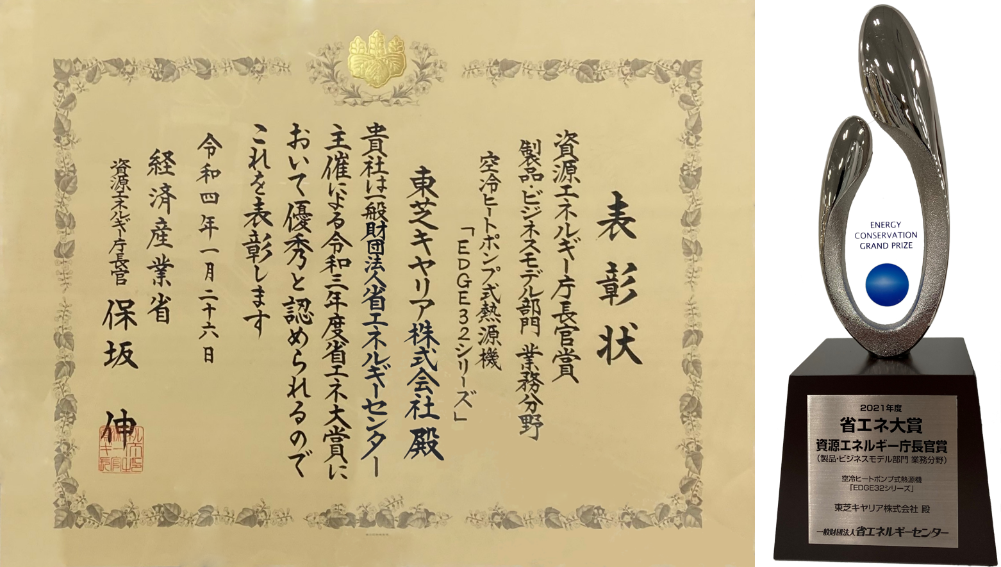 表彰状
資源エネルギー庁長官賞
製品・ビジネスモデル部門 業務分野
空冷ヒートポンプ式熱源機
「EDGE32シリーズ」
東芝キヤリア株式会社 殿
貴社は一般財団法人省エネルギーセンター
主催による令和三年度省エネ大賞に
おいて優秀と認められるので
これを表彰します
令和四年一月二十六日
経済産業省
資源エネルギー庁長官 保坂 伸
ENERGY
CONSERVATION
GRAND PRIZE
2021年度
省エネ大賞
資源エネルギー庁長官賞
(製品・ビジネスモデル部門 業務分野)
空冷ヒートポンプ式熱源機
「EDGE32シリーズ」
東芝キヤリア株式会社 殿
一般財団法人省エネルギーセンター